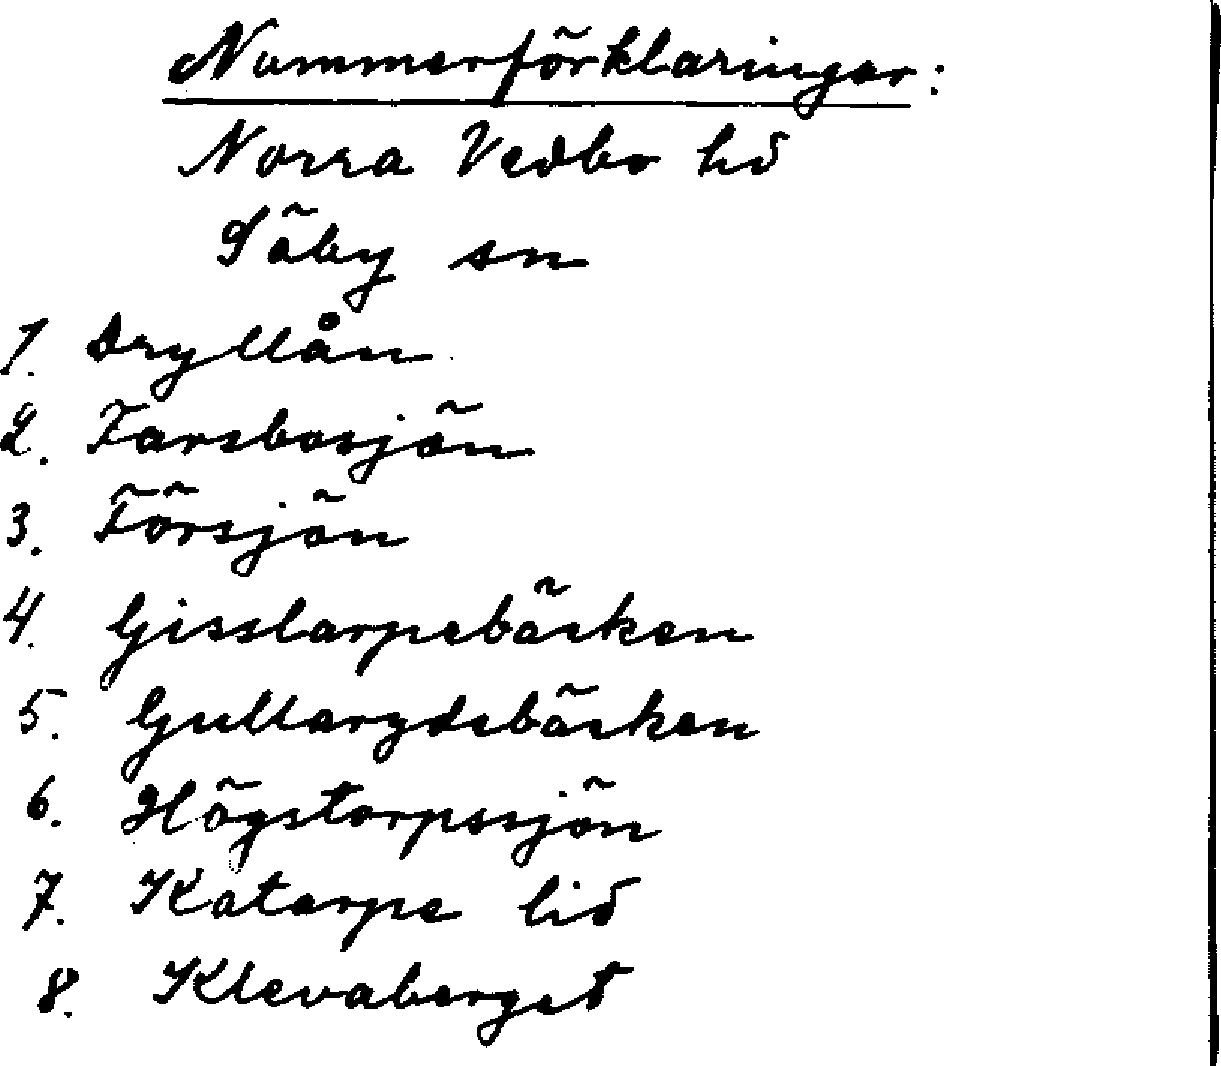 Nummerförklaringar:
Norra Vedbo hd
Säby sn
1. Dryllån
2. Farsbosjön
3. Försjön
4. Gisslarpebäcken
5. Gullarydsbäcken
6. Högstorpssjön
7. Katarpe lid
8. Klevaberget